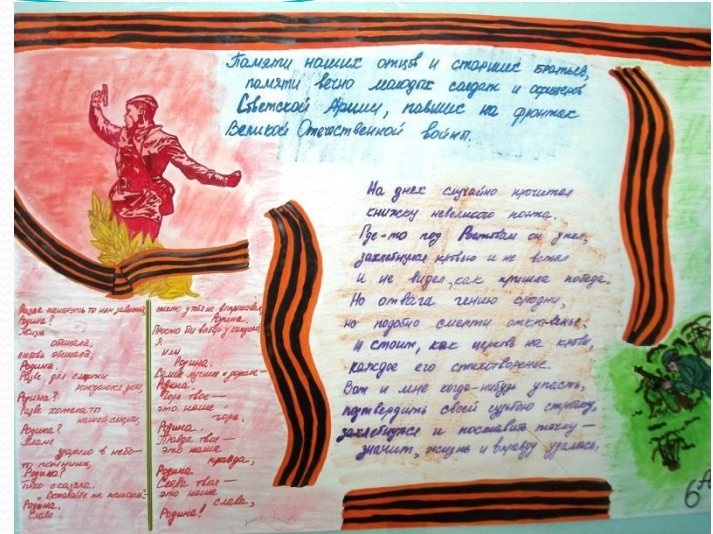 Памяти наших отцов и старших братьев,
памяти вечно молодых солдат и офицеров
Советской Армии, павших на фронтах
Великой Отечественной войны.
На днях случайно прочитал
книжку невеликого поэта.
Где-то под Ростовом он упал,
захлебнулся кровью и не встал
и не видел, как пришла победа.
Но отвага гению сродни,
но подобно смерти
и стоит, как церковь на крови,
каждое его стихотворение.
Вот и мне когда-нибудь упасть,
подтвердить своей судьбою строчку,
захлебнуться и поставить точку —
значит, жизнь и вправду удалась.
Разве погибнуть ты нам завещала,
Родина?
Жизнь
обещала,
любовь обещала,
Родина.
Разве для смерти
рождаются дети,
Родина?
Разве хотела ты
нашей смерти,
Родина?
Пламя
ударило в небо —
ты помнишь,
Родина?
Тихо сказала:
Вставайте на помощь
Родина.
Славы
никто у тебя не выпрашивал,
Родина.
Просто был выбор у каждого
Я
или
Родина.
Самое лучшее и дорогое —
Родина.
Горе твое —
это наше
горе,
Родина.
Правда твоя —
это наша
правда,
Родина.
Слава твоя —
это наша
слава,
Родина!
6 А